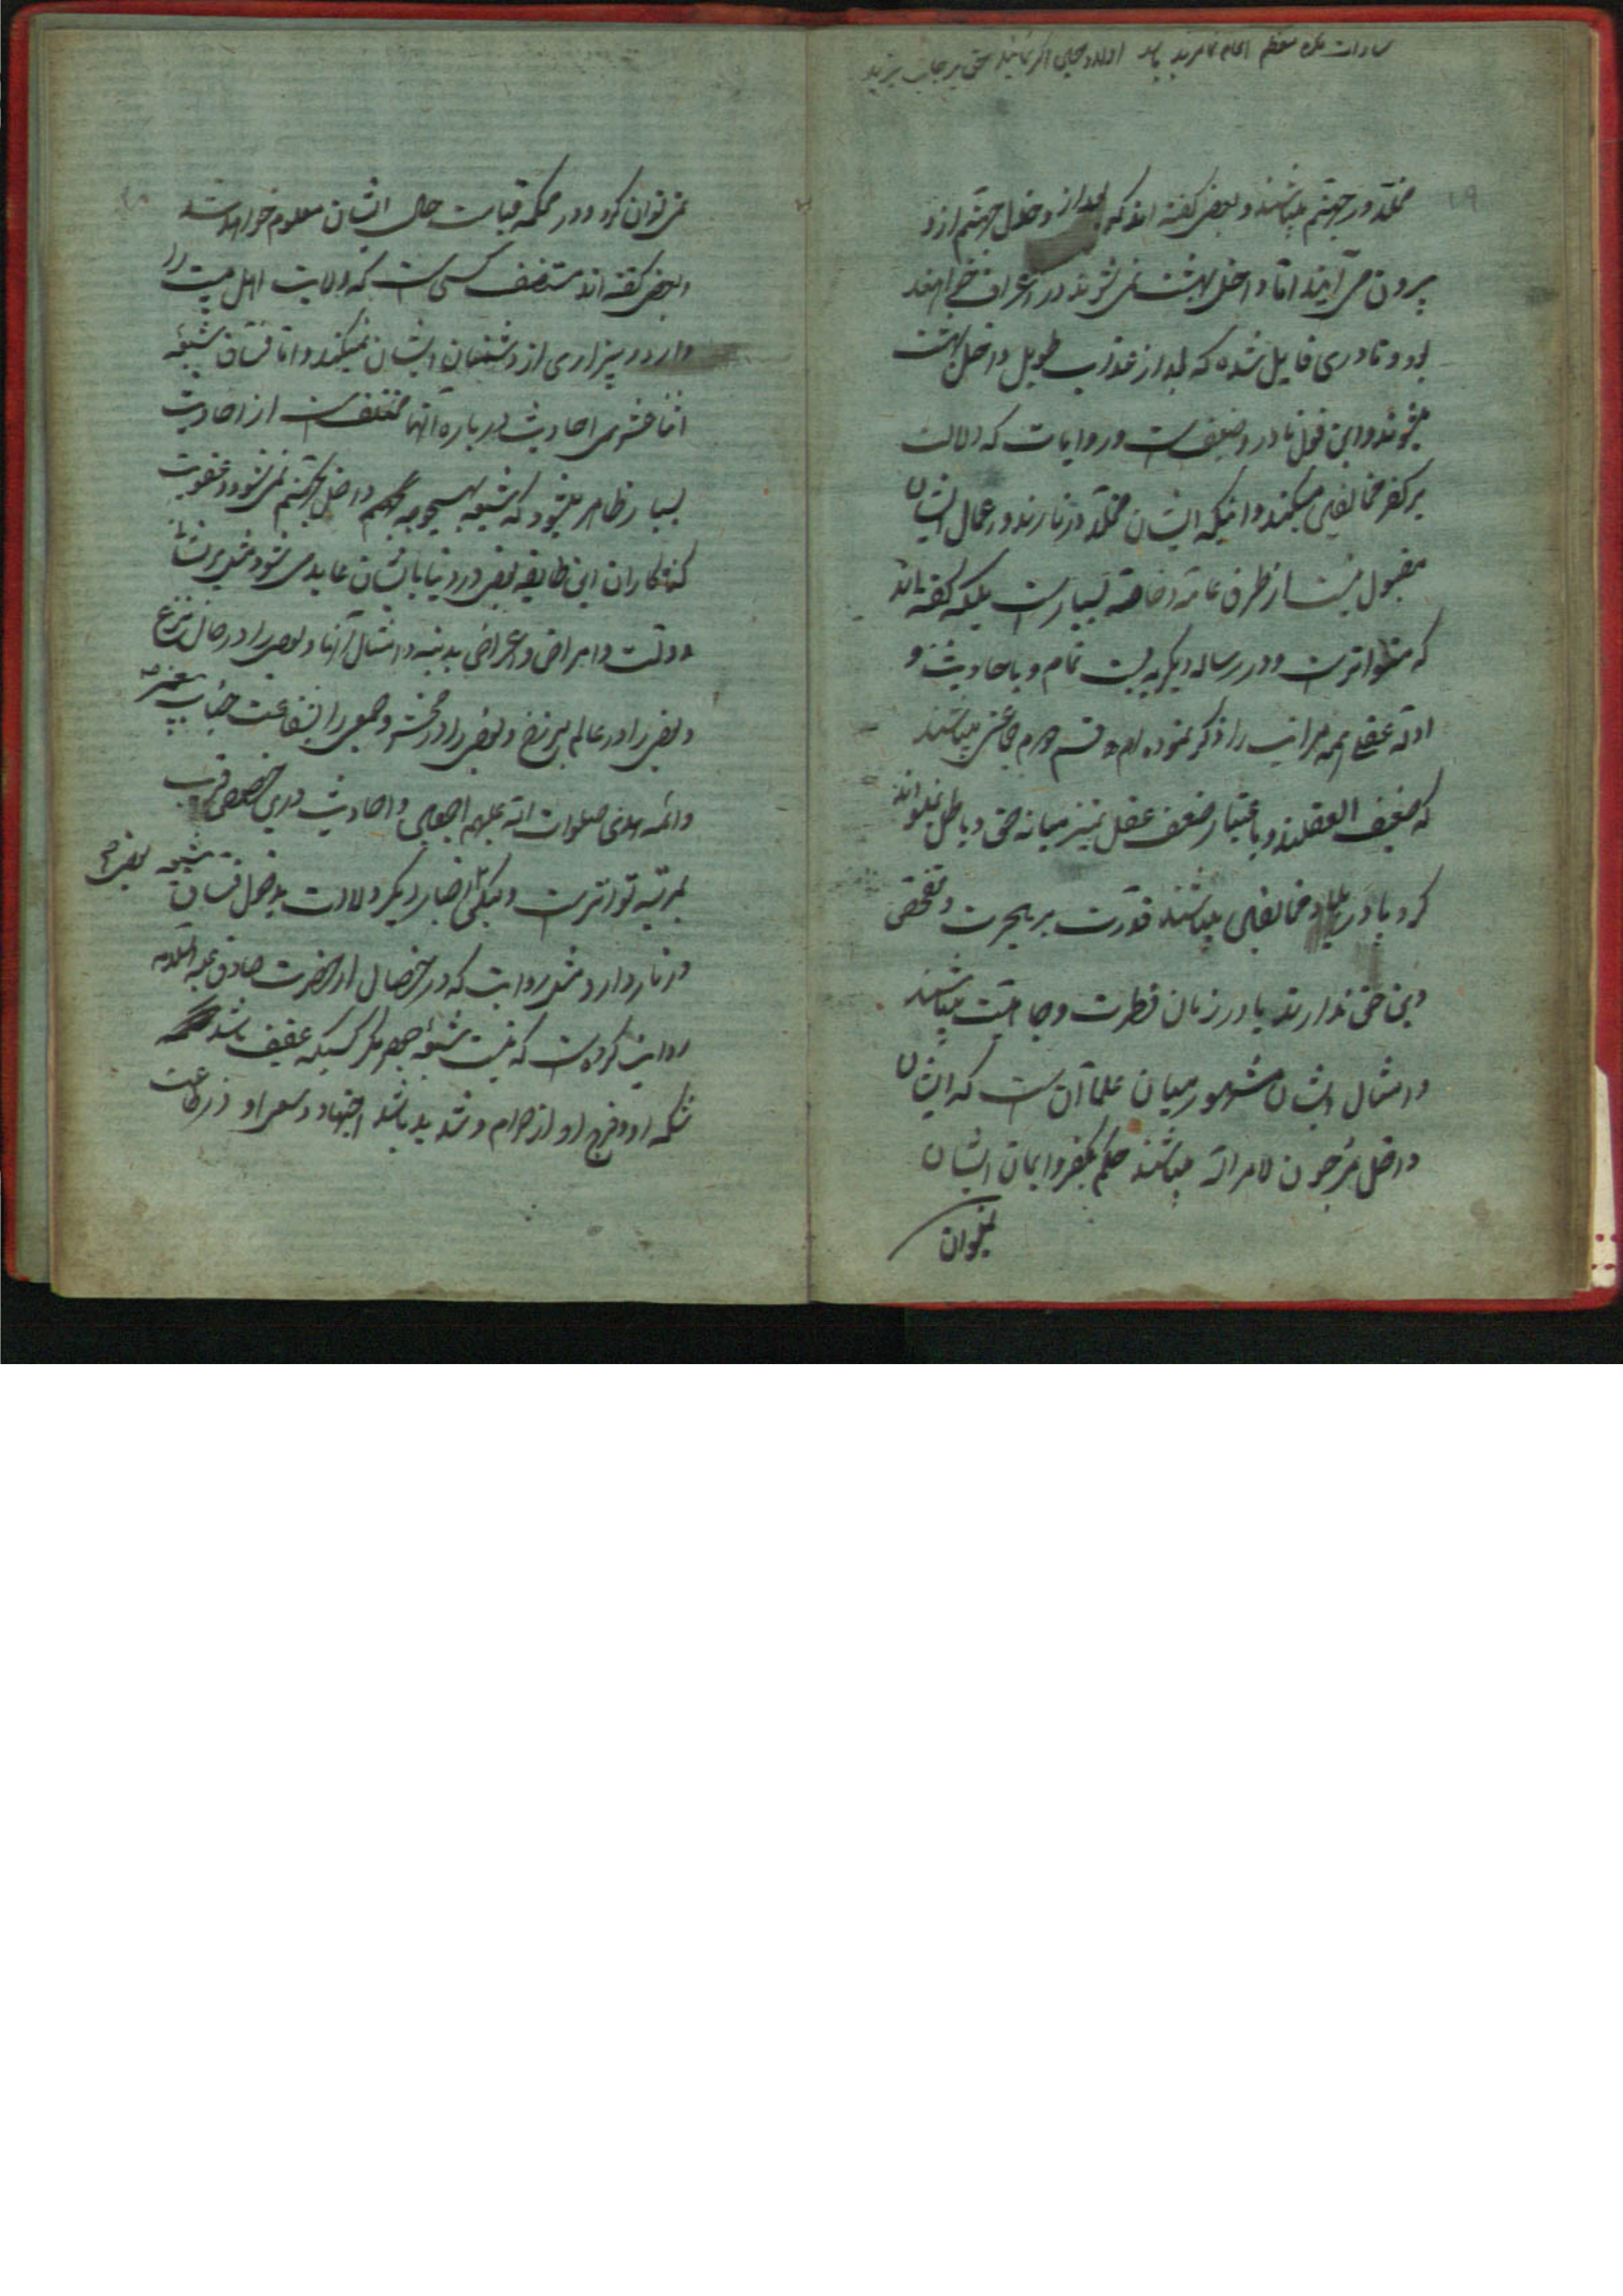 مخلد در جهنم میباشند و بعضی گفته اند که بعد از دخول جهنم از او
بیرون می آیند اما داخل بهشت نمی شوند در اعراف خواهند
بود و نادری قایل شده که بعد از عذاب طویل داخل بهشت
میشوند و این قول نادر و ضعیفست و روایات که دلالت
بر کفر مخالفین میکند و اینکه ایشان مخلد در نارند و اعمال ایشان
مقبول نیست از طرق عامه و خاصه بسیارست بلکه گفته اند
که متواترست و در رساله دیگر به بسط تمام و با احادیث و
ادله عقلی همه مراتب را ذکر نموده ام و قسم دوم جماعتی میباشند
که ضعیف العقلند و باعتبار ضعف عقل تمیز میانه حق و باطل نمیتوانند
کرد یا در بلاد مخالفین میباشند قدرت بر هجرت و تفحص
دین حق ندارند یا در زمان فطرت و جاهلیت میباشند
و امثال ایشان مشهور میان علما آن ست که ایشان
داخل مرجون لامر الله میباشند حکم بکفر و ایمان ایشان
نمیتوان
نمی توان کرد و در محکمه قیامت حال ایشان معلوم خواهد شد
و بعضی گفته اند مستضعف کسی ست که ولایت اهل بیت را
دارد و بیزاری از دشمنان ایشان نمیکند و اما فساق شیعه
اثنا عشری احادیث درباره آنها مختلفست از احادیث
بسیار ظاهر میشود که شیعه بهیچوجه داخل جهنم نمی شود و عقوبت
گناه کاران این طایفه بعضی در دنیا بایشان عاید می شود مثل پریشانی
و ذلت و امراض و اعراض بدنیه و امثال آنها و بعضی را در حال نزع
و بعضی را در عالم برزخ و بعضی را در محشر و جمعی را بشفاعت جناب پیغمبر ص
و ائمه هدی صلوات الله علیهم اجمعین و احادیث درین خصوص قریب
بمرتبه تواترست ولیکن اخبار دیگر دلالت بدخول فساق شیعه
بعضی
در نار دارد مثل روایت که در خصال از حضرت صادق علیه السلام
روایت کرده ست که نیست شیعه جعفر مگر کسیکه عفیف باشد
شکم او و فرج او از حرام و شدید باشد اجتهاد و سعی او در طاعت